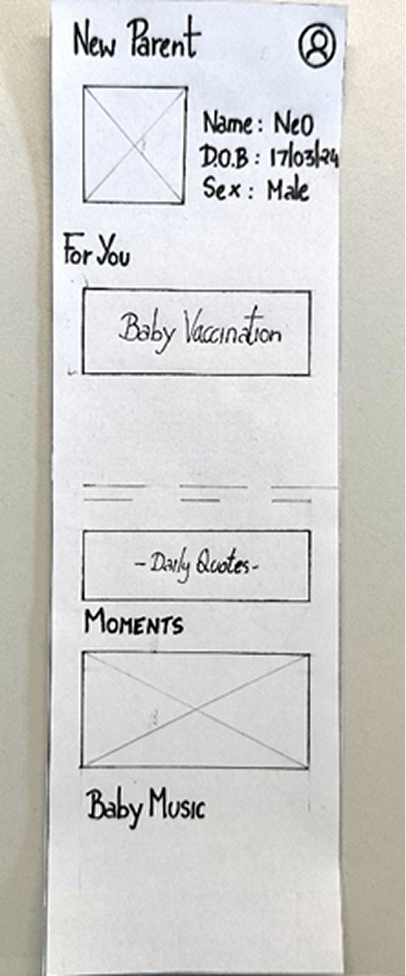 New Parent
Name: Neo
D.O.B: 17/03/24
Sex: Male
For You
Baby Vaccination
-Daily Quotes-
MOMENTS
Baby Music